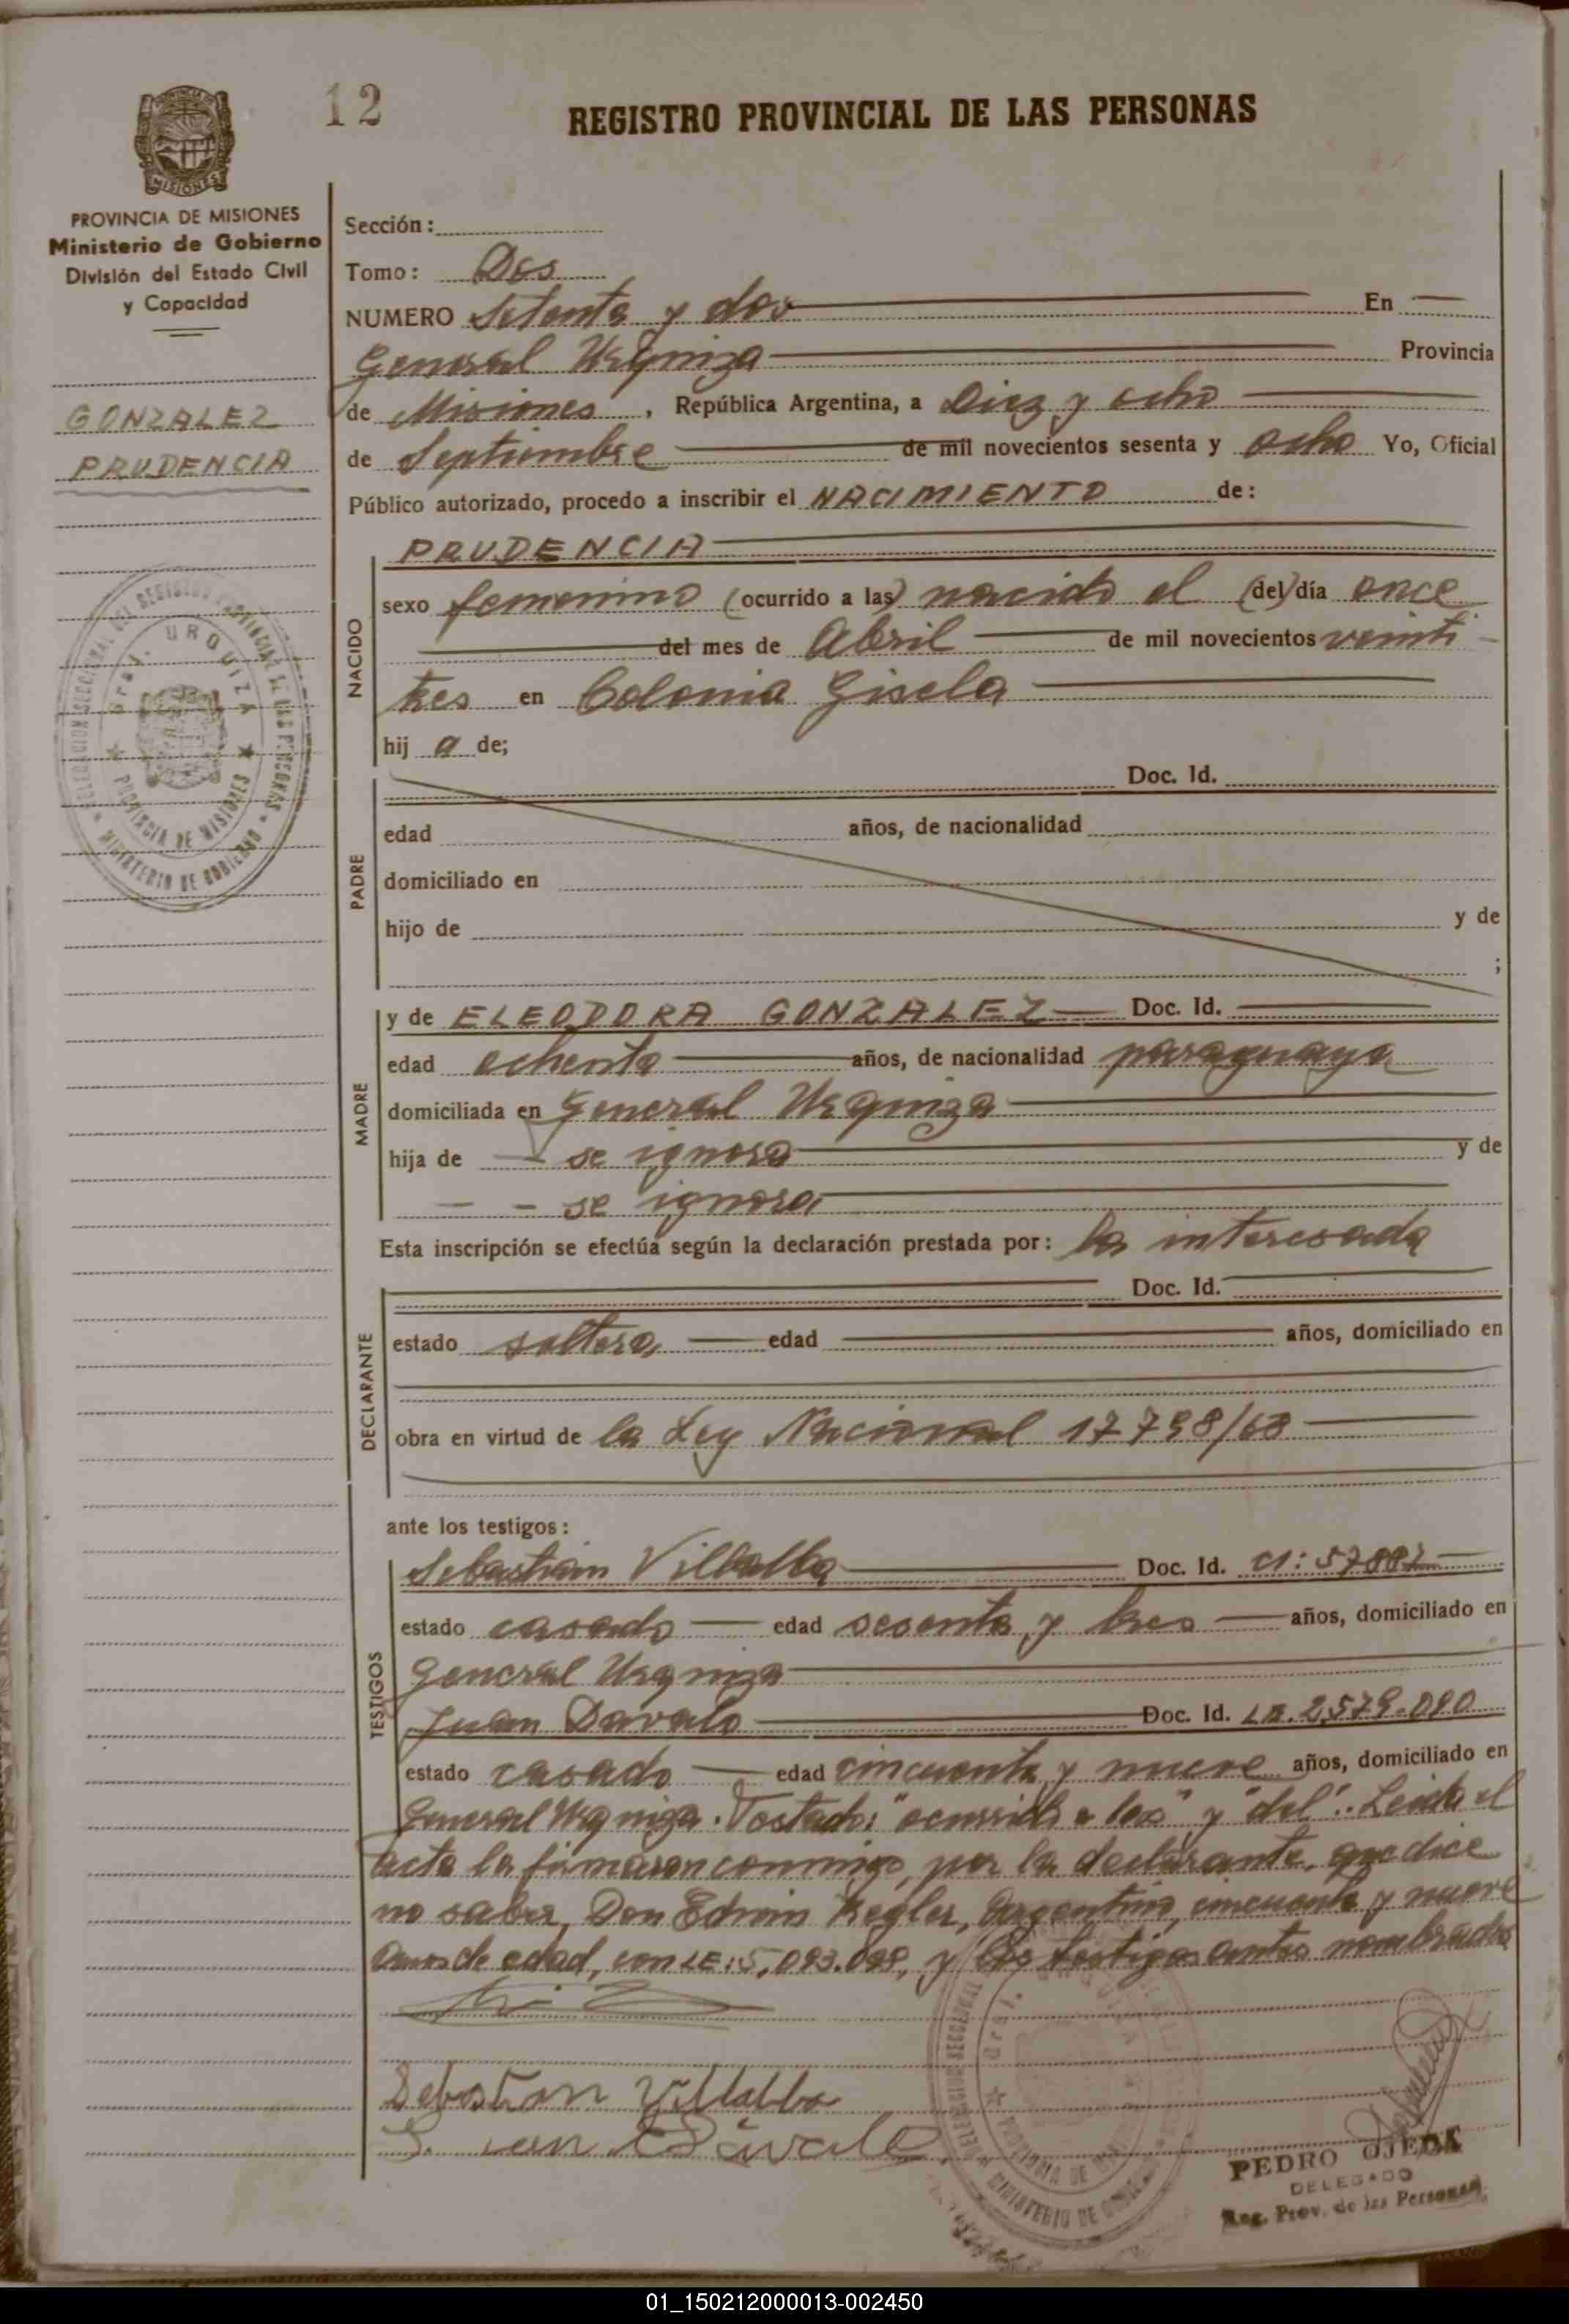 12
REGISTRO PROVINCIAL DE LAS PERSONAS
MISIONES
PROVINCIA DE MISIONES
Ministerio de Gobierno
División del Estado Civil
y Capacidad
GONZALEZ
PRUDENCIA
Sección:
Tomo: Dos
NUMERO Setenta y dos En
General Urquiza Provincia
de Misiones, República Argentina, a Diez y ocho
de Septiembre de mil novecientos sesenta y ocho Yo, Oficial
Público autorizado, procedo a inscribir el NACIMIENTO de:
NACIDO
PRUDENCIA
sexo femenino (ocurrido a las) nacido el (del) día once
del mes de Abril de mil novecientos veinti
tres en Colonia Gisela
hij a de;
PADRE
Doc. Id.
edad años, de nacionalidad
domiciliado en
hijo de y de
;
MADRE
y de ELEODORA GONZALEZ Doc. Id.
edad ochenta años, de nacionalidad paraguaya
domiciliada en General Urquiza
hija de se ignora y de
se ignora
Esta inscripción se efectúa según la declaración prestada por: la interesada
DECLARANTE
Doc. Id.
estado soltera edad años, domiciliado en
obra en virtud de la Ley Nacional 17798/68
ante los testigos:
TESTIGOS
Sebastián Villalba Doc. Id. CI: 57882
estado casado edad sesenta y tres años, domiciliado en
General Urquiza
Juan Davalo Doc. Id. LE. 2.579.090
estado casado edad cincuenta y nueve años, domiciliado en
General Urquiza. Testado: "ocurrido a las" y "del". Leida el
acta la firmaron conmigo, por la declarante, que dice
no saber, Don Edwin Argentino, cincuenta y nueve
años de edad, con LE: 5.093.098, y los testigos antes nombrados
Sebastian Villalba
Juan Davalo
PEDRO OJEDA
DELEGADO
Reg. Prov. de las Personas
Gral. URQUIZA
PROVINCIA DE MISIONES
MINISTERIO DE GOBIERNO
01_150212000013-002450